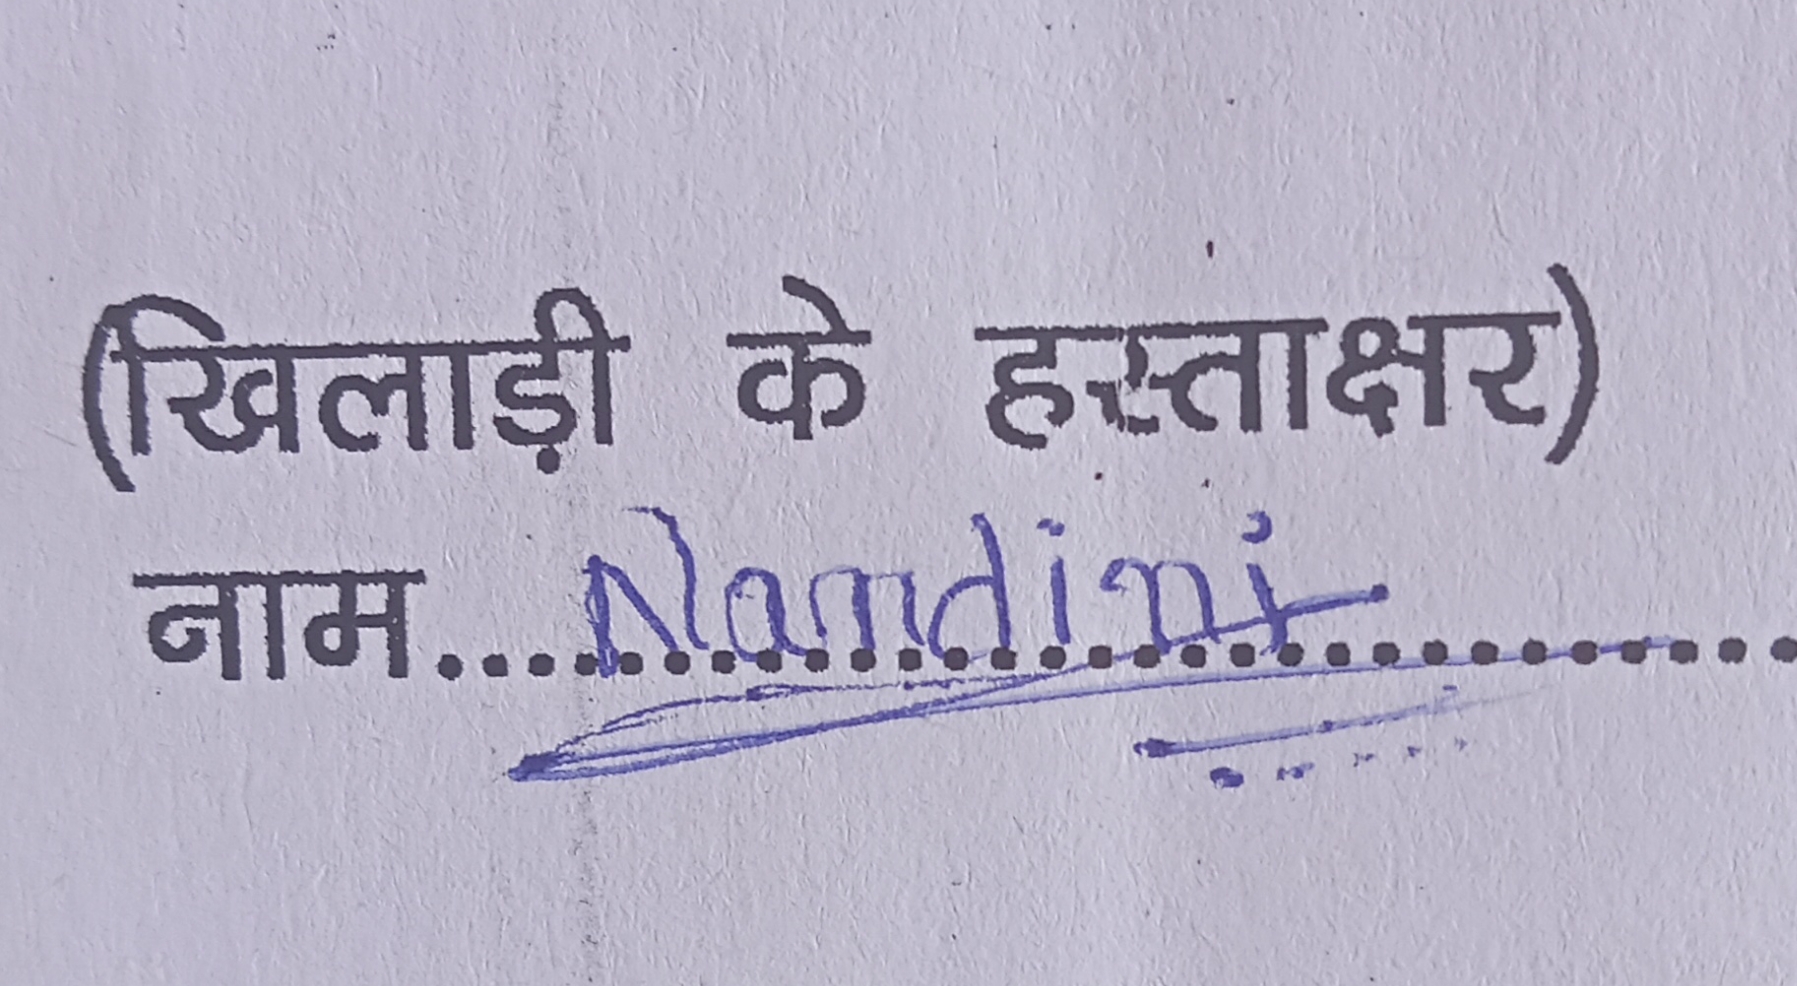 (खिलाड़ी के हस्ताक्षर)
नाम.... Nandini ....................